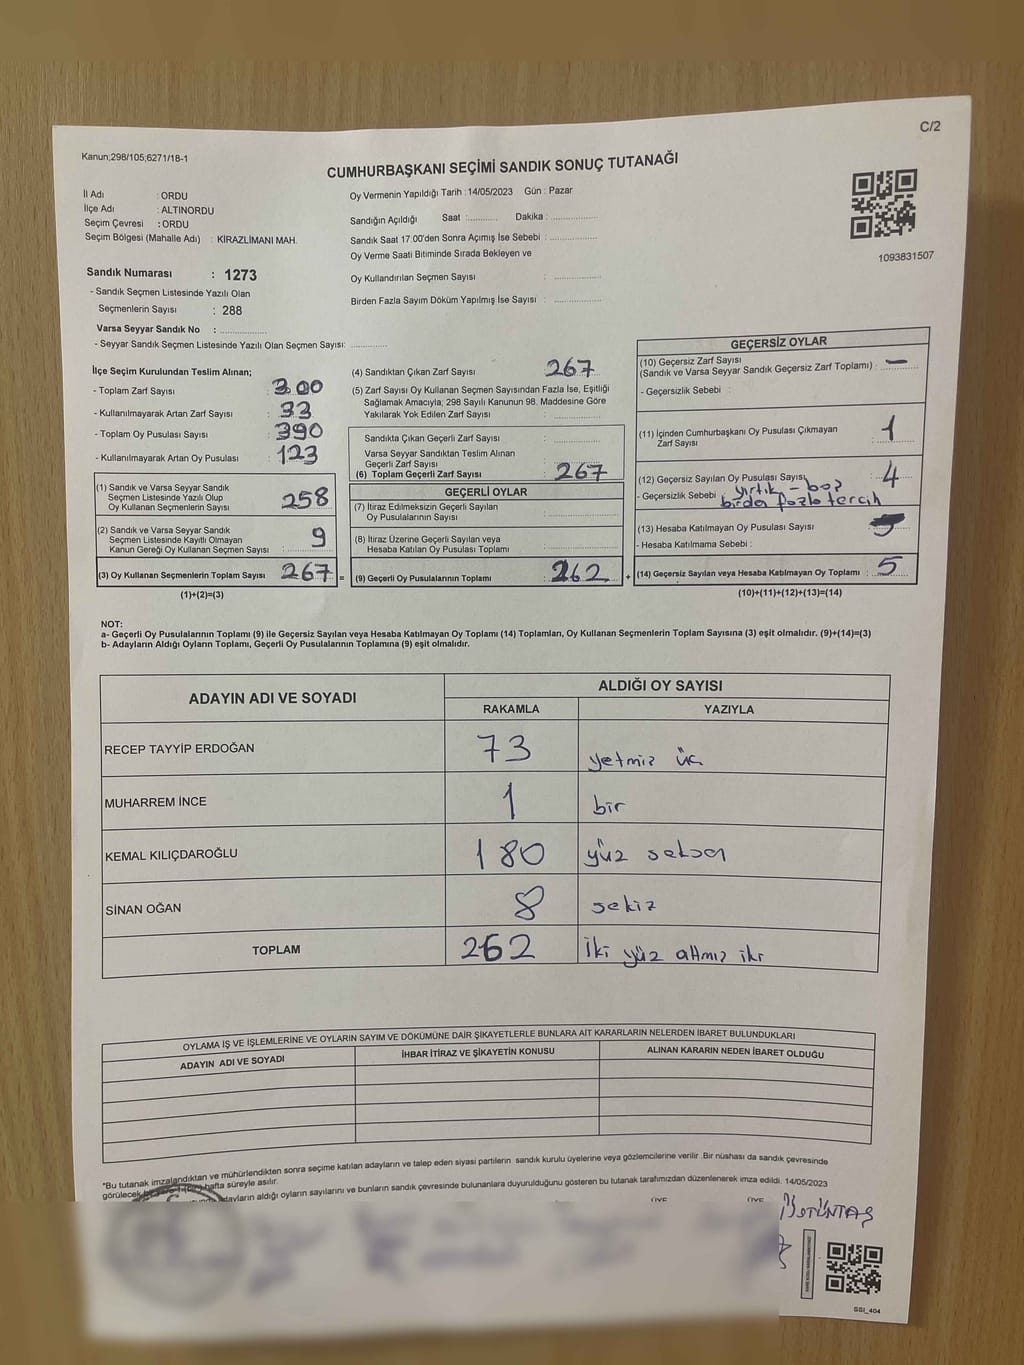 C/2
Kanun;298/105;6271/18-1
CUMHURBAŞKANI SEÇİMİ SANDIK SONUÇ TUTANAĞI
İl Adı : ORDU
İlçe Adı : ALTINORDU
Seçim Çevresi : ORDU
Seçim Bölgesi (Mahalle Adı) : KİRAZLİMANI MAH.
Sandık Numarası : 1273
- Sandık Seçmen Listesinde Yazılı Olan
Seçmenlerin Sayısı : 288
Varsa Seyyar Sandık No : ....................
- Seyyar Sandık Seçmen Listesinde Yazılı Olan Seçmen Sayısı: ..............
Oy Vermenin Yapıldığı Tarih : 14/05/2023 Gün : Pazar
Sandığın Açıldığı Saat :........... Dakika : ..................
Sandık Saat 17:00'den Sonra Açımış İse Sebebi : ..................
Oy Verme Saati Bitiminde Sırada Bekleyen ve
Oy Kullandırılan Seçmen Sayısı : ..................
Birden Fazla Sayım Döküm Yapılmış İse Sayısı : ..................
1093831507
İlçe Seçim Kurulundan Teslim Alınan;
- Toplam Zarf Sayısı : 300
- Kullanılmayarak Artan Zarf Sayısı : 33
- Toplam Oy Pusulası Sayısı : 390
- Kullanılmayarak Artan Oy Pusulası : 123
(1) Sandık ve Varsa Seyyar Sandık
Seçmen Listesinde Yazılı Olup
Oy Kullanan Seçmenlerin Sayısı : 258
(2) Sandık ve Varsa Seyyar Sandık
Seçmen Listesinde Kayıtlı Olmayan
Kanun Gereği Oy Kullanan Seçmen Sayısı : 9
(3) Oy Kullanan Seçmenlerin Toplam Sayısı : 267 =
(1)+(2)=(3)
(4) Sandıktan Çıkan Zarf Sayısı : 267
(5) Zarf Sayısı Oy Kullanan Seçmen Sayısından Fazla İse, Eşitliği
Sağlamak Amacıyla; 298 Sayılı Kanunun 98. Maddesine Göre
Yakılarak Yok Edilen Zarf Sayısı : ..................
Sandıkta Çıkan Geçerli Zarf Sayısı : ..................
Varsa Seyyar Sandıktan Teslim Alınan
Geçerli Zarf Sayısı : ..................
(6) Toplam Geçerli Zarf Sayısı : 267
GEÇERLİ OYLAR
(7) İtiraz Edilmeksizin Geçerli Sayılan
Oy Pusulalarının Sayısı : ..................
(8) İtiraz Üzerine Geçerli Sayılan veya
Hesaba Katılan Oy Pusulası Toplamı : ..................
(9) Geçerli Oy Pusulalarının Toplamı : 262 +
GEÇERSİZ OYLAR
(10) Geçersiz Zarf Sayısı
(Sandık ve Varsa Seyyar Sandık Geçersiz Zarf Toplamı) : -
- Geçersizlik Sebebi :
(11) İçinden Cumhurbaşkanı Oy Pusulası Çıkmayan
Zarf Sayısı : 1
(12) Geçersiz Sayılan Oy Pusulası Sayısı : 4
- Geçersizlik Sebebi yırtık - boş
birden fazla tercih
(13) Hesaba Katılmayan Oy Pusulası Sayısı
- Hesaba Katılmama Sebebi :
(14) Geçersiz Sayılan veya Hesaba Katılmayan Oy Toplamı : 5
(10)+(11)+(12)+(13)=(14)
NOT:
a- Geçerli Oy Pusulalarının Toplamı (9) ile Geçersiz Sayılan veya Hesaba Katılmayan Oy Toplamı (14) Toplamları, Oy Kullanan Seçmenlerin Toplam Sayısına (3) eşit olmalıdır. (9)+(14)=(3)
b- Adayların Aldığı Oyların Toplamı, Geçerli Oy Pusulalarının Toplamına (9) eşit olmalıdır.
ADAYIN ADI VE SOYADI
ALDIĞI OY SAYISI
RAKAMLA YAZIYLA
RECEP TAYYİP ERDOĞAN 73 yetmiş üç
MUHARREM İNCE 1 bir
KEMAL KILIÇDAROĞLU 180 yüz seksen
SİNAN OĞAN 8 sekiz
TOPLAM 262 İki yüz altmış iki
OYLAMA İŞ VE İŞLEMLERİNE VE OYLARIN SAYIM VE DÖKÜMÜNE DAİR ŞİKAYETLERLE BUNLARA AİT KARARLARIN NELERDEN İBARET BULUNDUKLARI
ADAYIN ADI VE SOYADI İHBAR İTİRAZ VE ŞİKAYETİN KONUSU ALINAN KARARIN NEDEN İBARET OLDUĞU
*Bu tutanak imzalandıktan ve mühürlendikten sonra seçime katılan adayların ve talep eden siyasi partilerin sandık kurulu üyelerine veya gözlemcilerine verilir. Bir nüshası da sandık çevresinde
görülecek hafta süreyle asılır.
adayların aldığı oyların sayılarını ve bunların sandık çevresinde bulunanlara duyurulduğunu gösteren bu tutanak tarafımızdan düzenlenerek imza edildi. 14/05/2023
ÜYE ÜYE
SSI_404